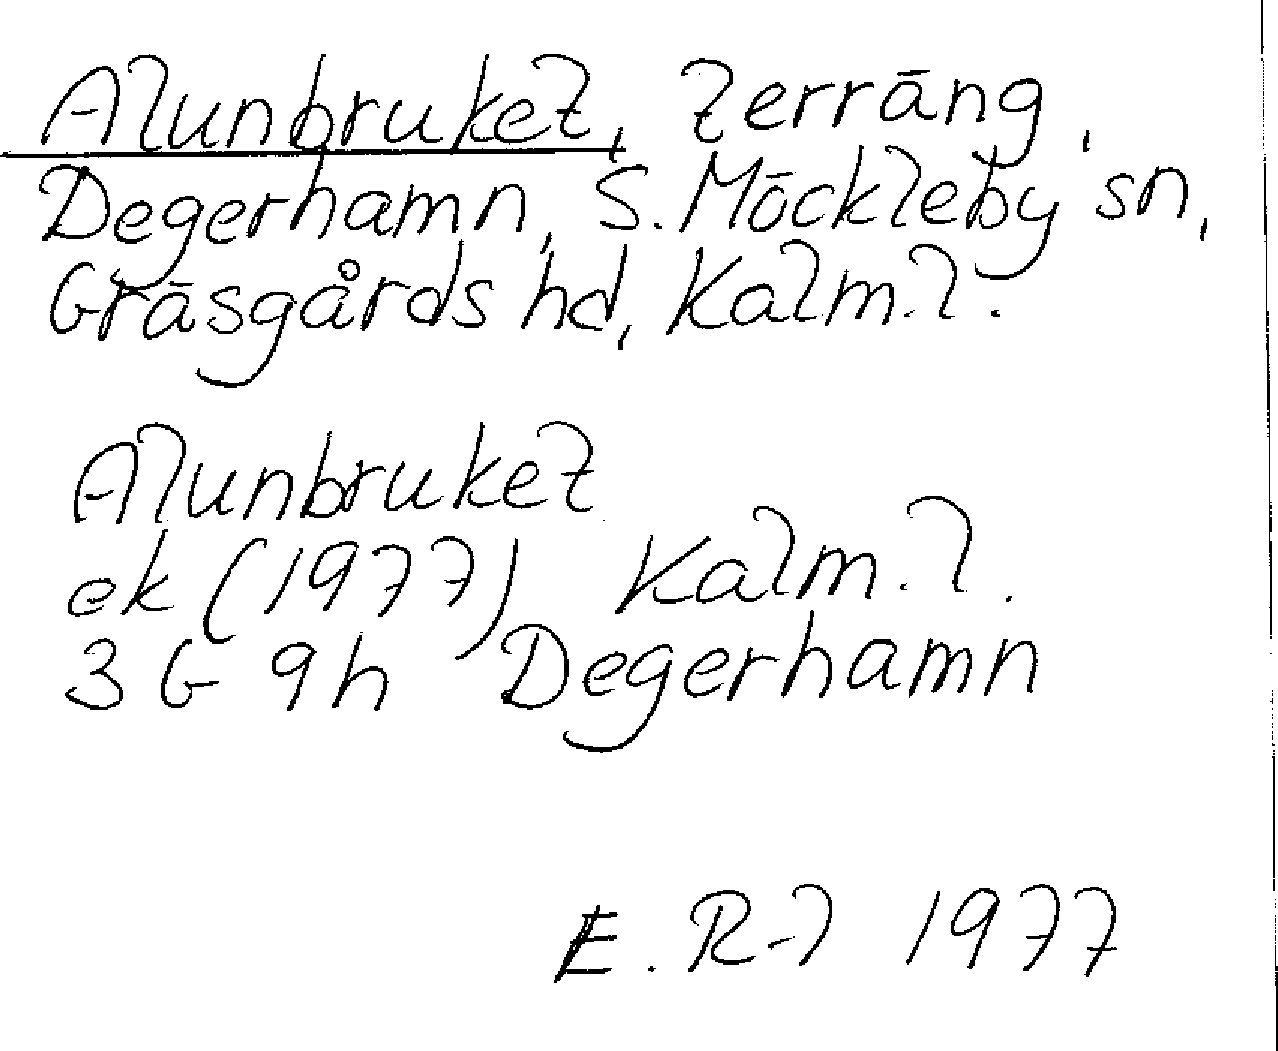 Alunbruket, terräng,
Degerhamn, S. Möckleby sn,
Gräsgårds hd, Kalm. l.
Alunbruket
ek (1977) Kalm. l.
3 G 9h Degerhamn
E. R-l 1977